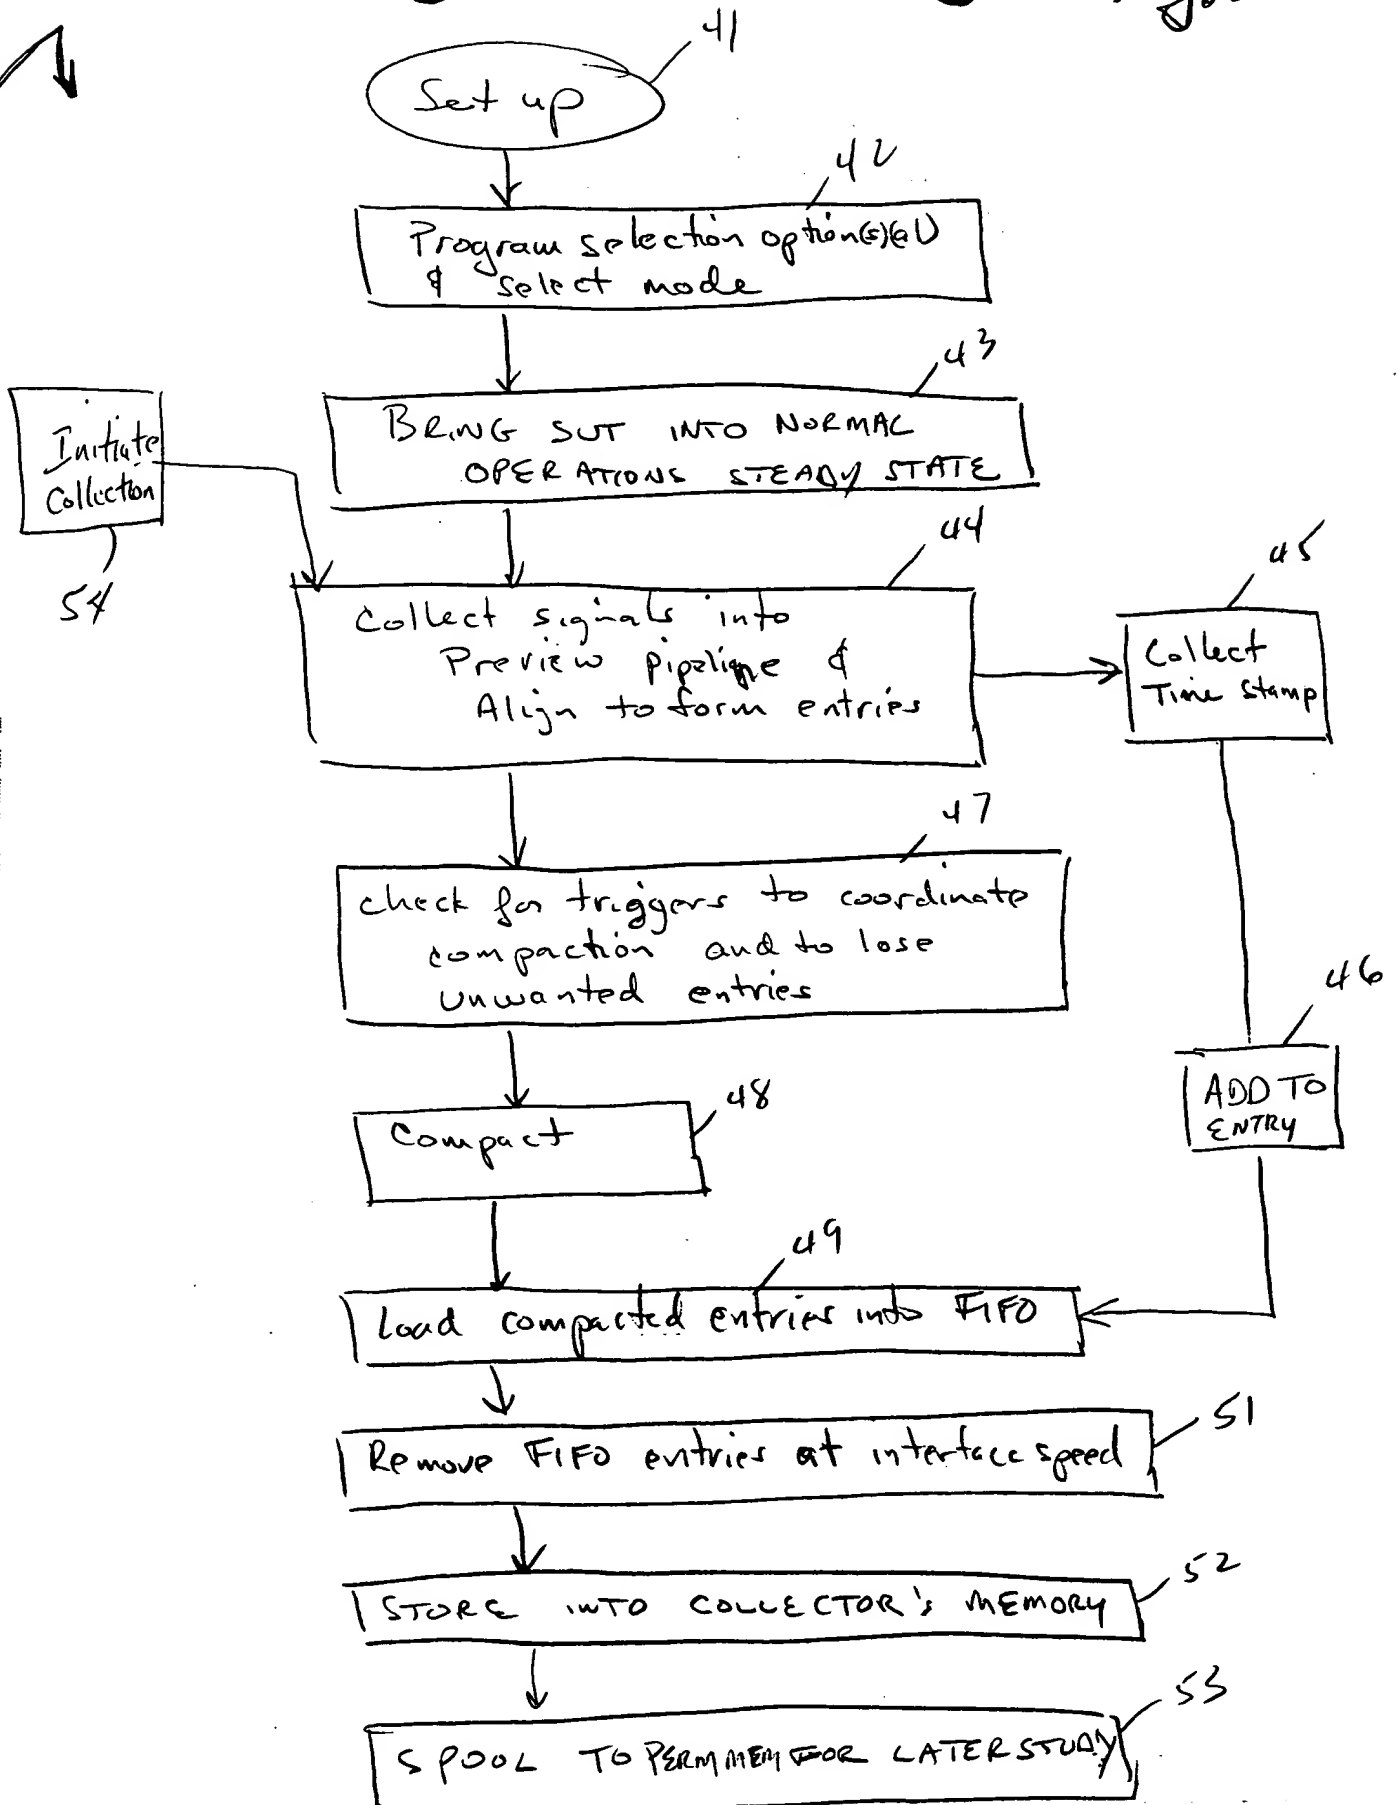 41
Set up
42
Program selection option(s)(al)
& select mode
43
BRING SUT INTO NORMAL
OPERATIONS STEADY STATE
Initiate
Collection
54
44
Collect signals into
Preview pipeline &
Align to form entries
45
Collect
Time Stamp
47
check for triggers to coordinate
compaction and to lose
unwanted entries
46
ADD TO
ENTRY
48
Compact
49
Load compacted entries into FIFO
51
Remove FIFO entries at interface speed
52
STORE INTO COLLECTOR'S MEMORY
53
SPOOL TO PERM MEM FOR LATER STUDY